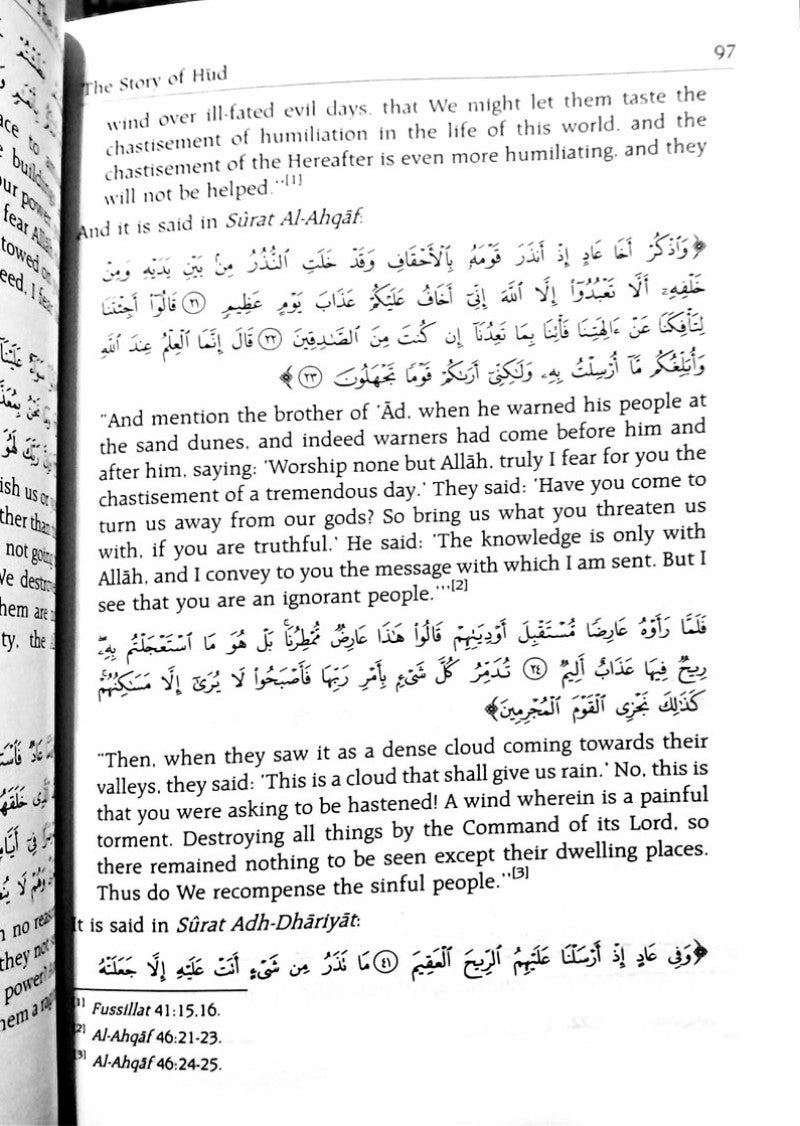 The Story of Hūd
97
wind over ill-fated evil days, that We might let them taste the
chastisement of humiliation in the life of this world, and the
chastisement of the Hereafter is even more humiliating, and they
will not be helped."[1]
And it is said in Sûrat Al-Ahqāf:
﴿وَٱذْكُرْ أَخَا عَادٍ إِذْ أَنذَرَ قَوْمَهُۥ بِٱلْأَحْقَافِ وَقَدْ خَلَتِ ٱلنُّذُرُ مِنۢ بَيْنِ يَدَيْهِ وَمِنْ
خَلْفِهِۦٓ أَلَّا تَعْبُدُوٓا۟ إِلَّا ٱللَّهَ إِنِّىٓ أَخَافُ عَلَيْكُمْ عَذَابَ يَوْمٍ عَظِيمٍ ٢١ قَالُوٓا۟ أَجِئْتَنَا
لِتَأْفِكَنَا عَنْ ءَالِهَتِنَا فَأْتِنَا بِمَا تَعِدُنَآ إِن كُنتَ مِنَ ٱلصَّـٰدِقِينَ ٢٢ قَالَ إِنَّمَا ٱلْعِلْمُ عِندَ ٱللَّهِ
وَأُبَلِّغُكُم مَّآ أُرْسِلْتُ بِهِۦ وَلَـٰكِنِّىٓ أَرَىٰكُمْ قَوْمًا تَجْهَلُونَ ٢٣﴾
"And mention the brother of 'Ād, when he warned his people at
the sand dunes, and indeed warners had come before him and
after him, saying: 'Worship none but Allāh, truly I fear for you the
chastisement of a tremendous day.' They said: 'Have you come to
turn us away from our gods? So bring us what you threaten us
with, if you are truthful.' He said: 'The knowledge is only with
Allāh, and I convey to you the message with which I am sent. But I
see that you are an ignorant people.'"[2]
فَلَمَّا رَأَوْهُ عَارِضًا مُّسْتَقْبِلَ أَوْدِيَتِهِمْ قَالُوا۟ هَـٰذَا عَارِضٌ مُّمْطِرُنَا ۚ بَلْ هُوَ مَا ٱسْتَعْجَلْتُم بِهِۦ ۖ
رِيحٌ فِيهَا عَذَابٌ أَلِيمٌ ٢٤ تُدَمِّرُ كُلَّ شَىْءٍۭ بِأَمْرِ رَبِّهَا فَأَصْبَحُوا۟ لَا يُرَىٰٓ إِلَّا مَسَـٰكِنُهُمْ ۚ
كَذَٰلِكَ نَجْزِى ٱلْقَوْمَ ٱلْمُجْرِمِينَ﴾
"Then, when they saw it as a dense cloud coming towards their
valleys, they said: 'This is a cloud that shall give us rain.' No, this is
that you were asking to be hastened! A wind wherein is a painful
torment. Destroying all things by the Command of its Lord, so
there remained nothing to be seen except their dwelling places.
Thus do We recompense the sinful people."[3]
It is said in Sûrat Adh-Dhāriyāt:
﴿وَفِى عَادٍ إِذْ أَرْسَلْنَا عَلَيْهِمُ ٱلرِّيحَ ٱلْعَقِيمَ ٤١ مَا تَذَرُ مِن شَىْءٍ أَتَتْ عَلَيْهِ إِلَّا جَعَلَتْهُ
[1] Fussillat 41:15,16.
[2] Al-Ahqāf 46:21-23.
[3] Al-Ahqāf 46:24-25.